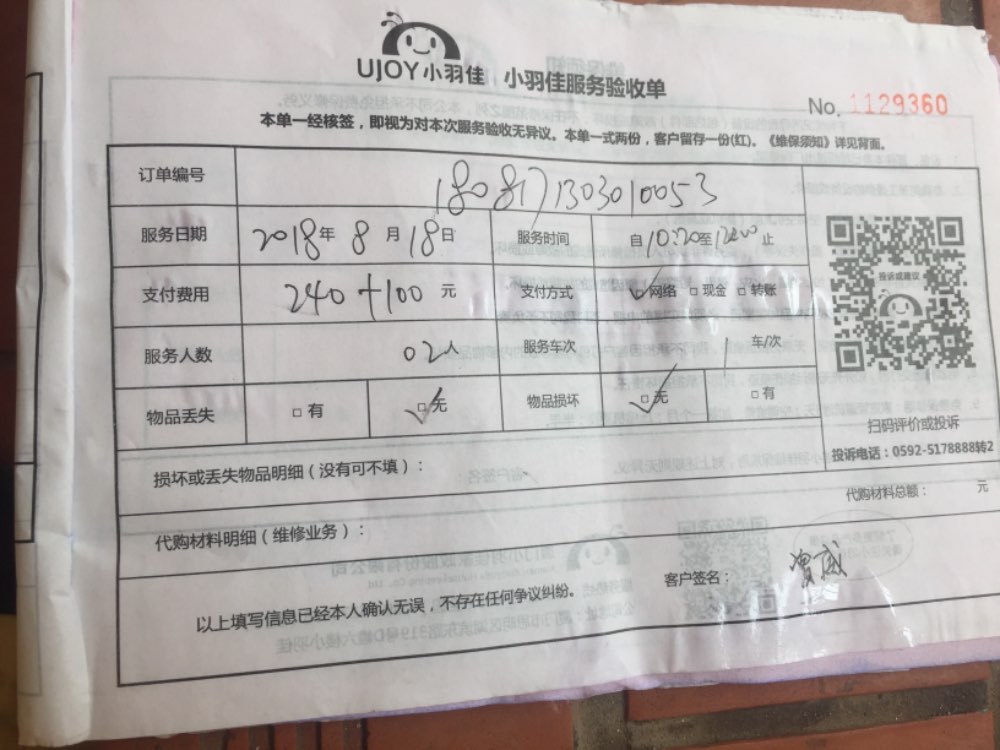 UJOY小羽佳 小羽佳服务验收单
No. 1129360
本单一经核签，即视为对本次服务验收无异议。本单一式两份，客户留存一份(红)。《维保须知》详见背面。
订单编号 180817130301 0053
服务日期 2018年 8月 18日 服务时间 自10:20至12:00止
支付费用 240+100 元 支付方式 ☑网络 □现金 □转账
投诉或建议
服务人数 02人 服务车次 1 车/次
物品丢失 □有 ☑无 物品损坏 ☑无 □有
扫码评价或投诉
投诉电话：0592-5178888转2
损坏或丢失物品明细（没有可不填）：
代购材料总额： 元
代购材料明细（维修业务）：
客户签名：
以上填写信息已经本人确认无误，不存在任何争议纠纷。